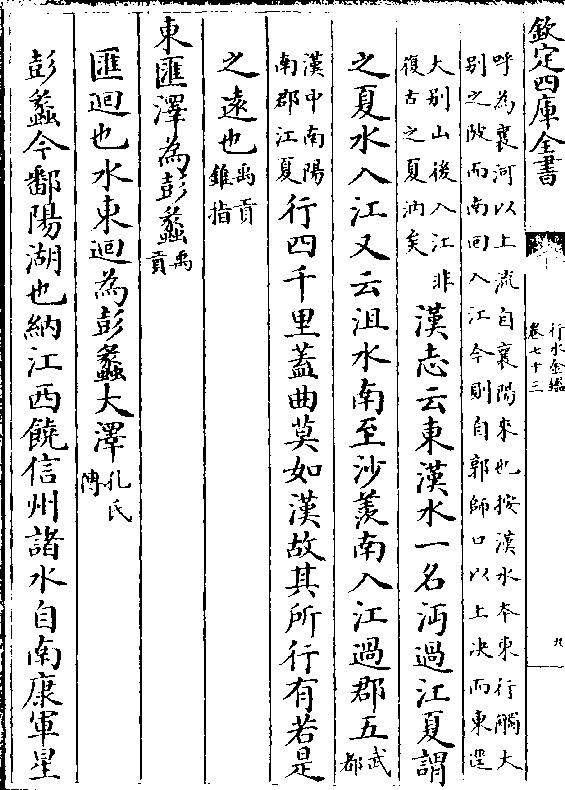 欽定四庫全書
行水金鑑
卷七十三
九
呼為襄河以上流自襄陽來也按漢水本東行觸大
别之陂而南回入江今則自郭師口以上決而東逕
大别山後入江非
復古之夏汭矣
漢志云東漢水一名沔過江夏謂
之夏水入江又云沮水南至沙羨南入江過郡五武
都
漢中南陽
南郡江夏
行四千里葢曲莫如漢故其所行有若是
之遠也禹貢
錐指
東匯澤為彭蠡禹
貢
匯迴也水東迴為彭蠡大澤孔氏
傳
彭蠡今鄱陽湖也納江西饒信州諸水自南康軍星